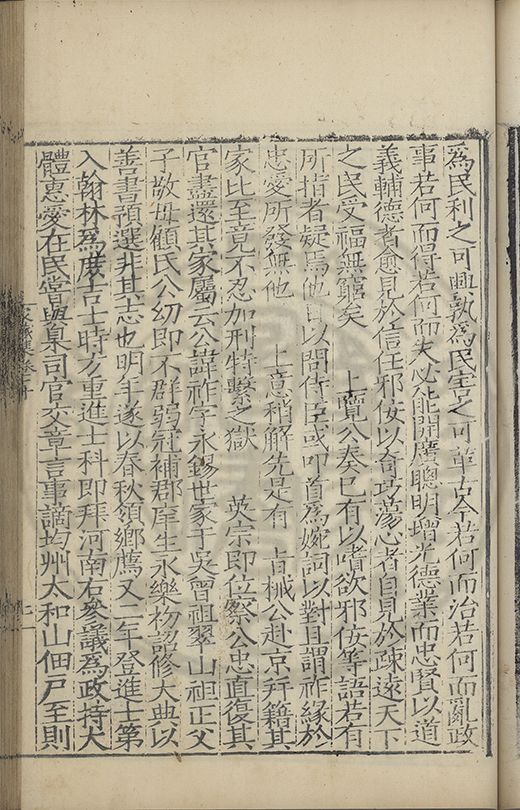 爲民利之可興孰爲民害之可革古今若何而治若何而亂政
事若何而得若何而失必能開廣聰明增光德業而忠賢以道
義輔德者愈見於信任邪佞以奇巧蕩心者自見於疎遠天下
之民受福無窮矣　上覽公奏已有以嗜欲邪佞等語若有
所指者疑焉他日以問侍臣或叩首爲婉詞以對且謂祚緣於
忠愛所發無他　上意稍解先是有　旨械公赴京幷籍其
家比至竟不忍加刑特繫之獄　英宗即位察公忠直復其
官盡還其家屬云公諱祚字永錫世家于吳曾祖翠山祖正父
子敬母顧氏公幼即不群弱冠補郡庠生永樂初詔修大典以
善書預選非其志也明年遂以春秋領鄉薦又二年登進士第
入翰林爲庶吉士時方重進士科即拜河南右參議爲政持大
體惠愛在民嘗與臬司官交章言事謫均州太和山佃戶至則